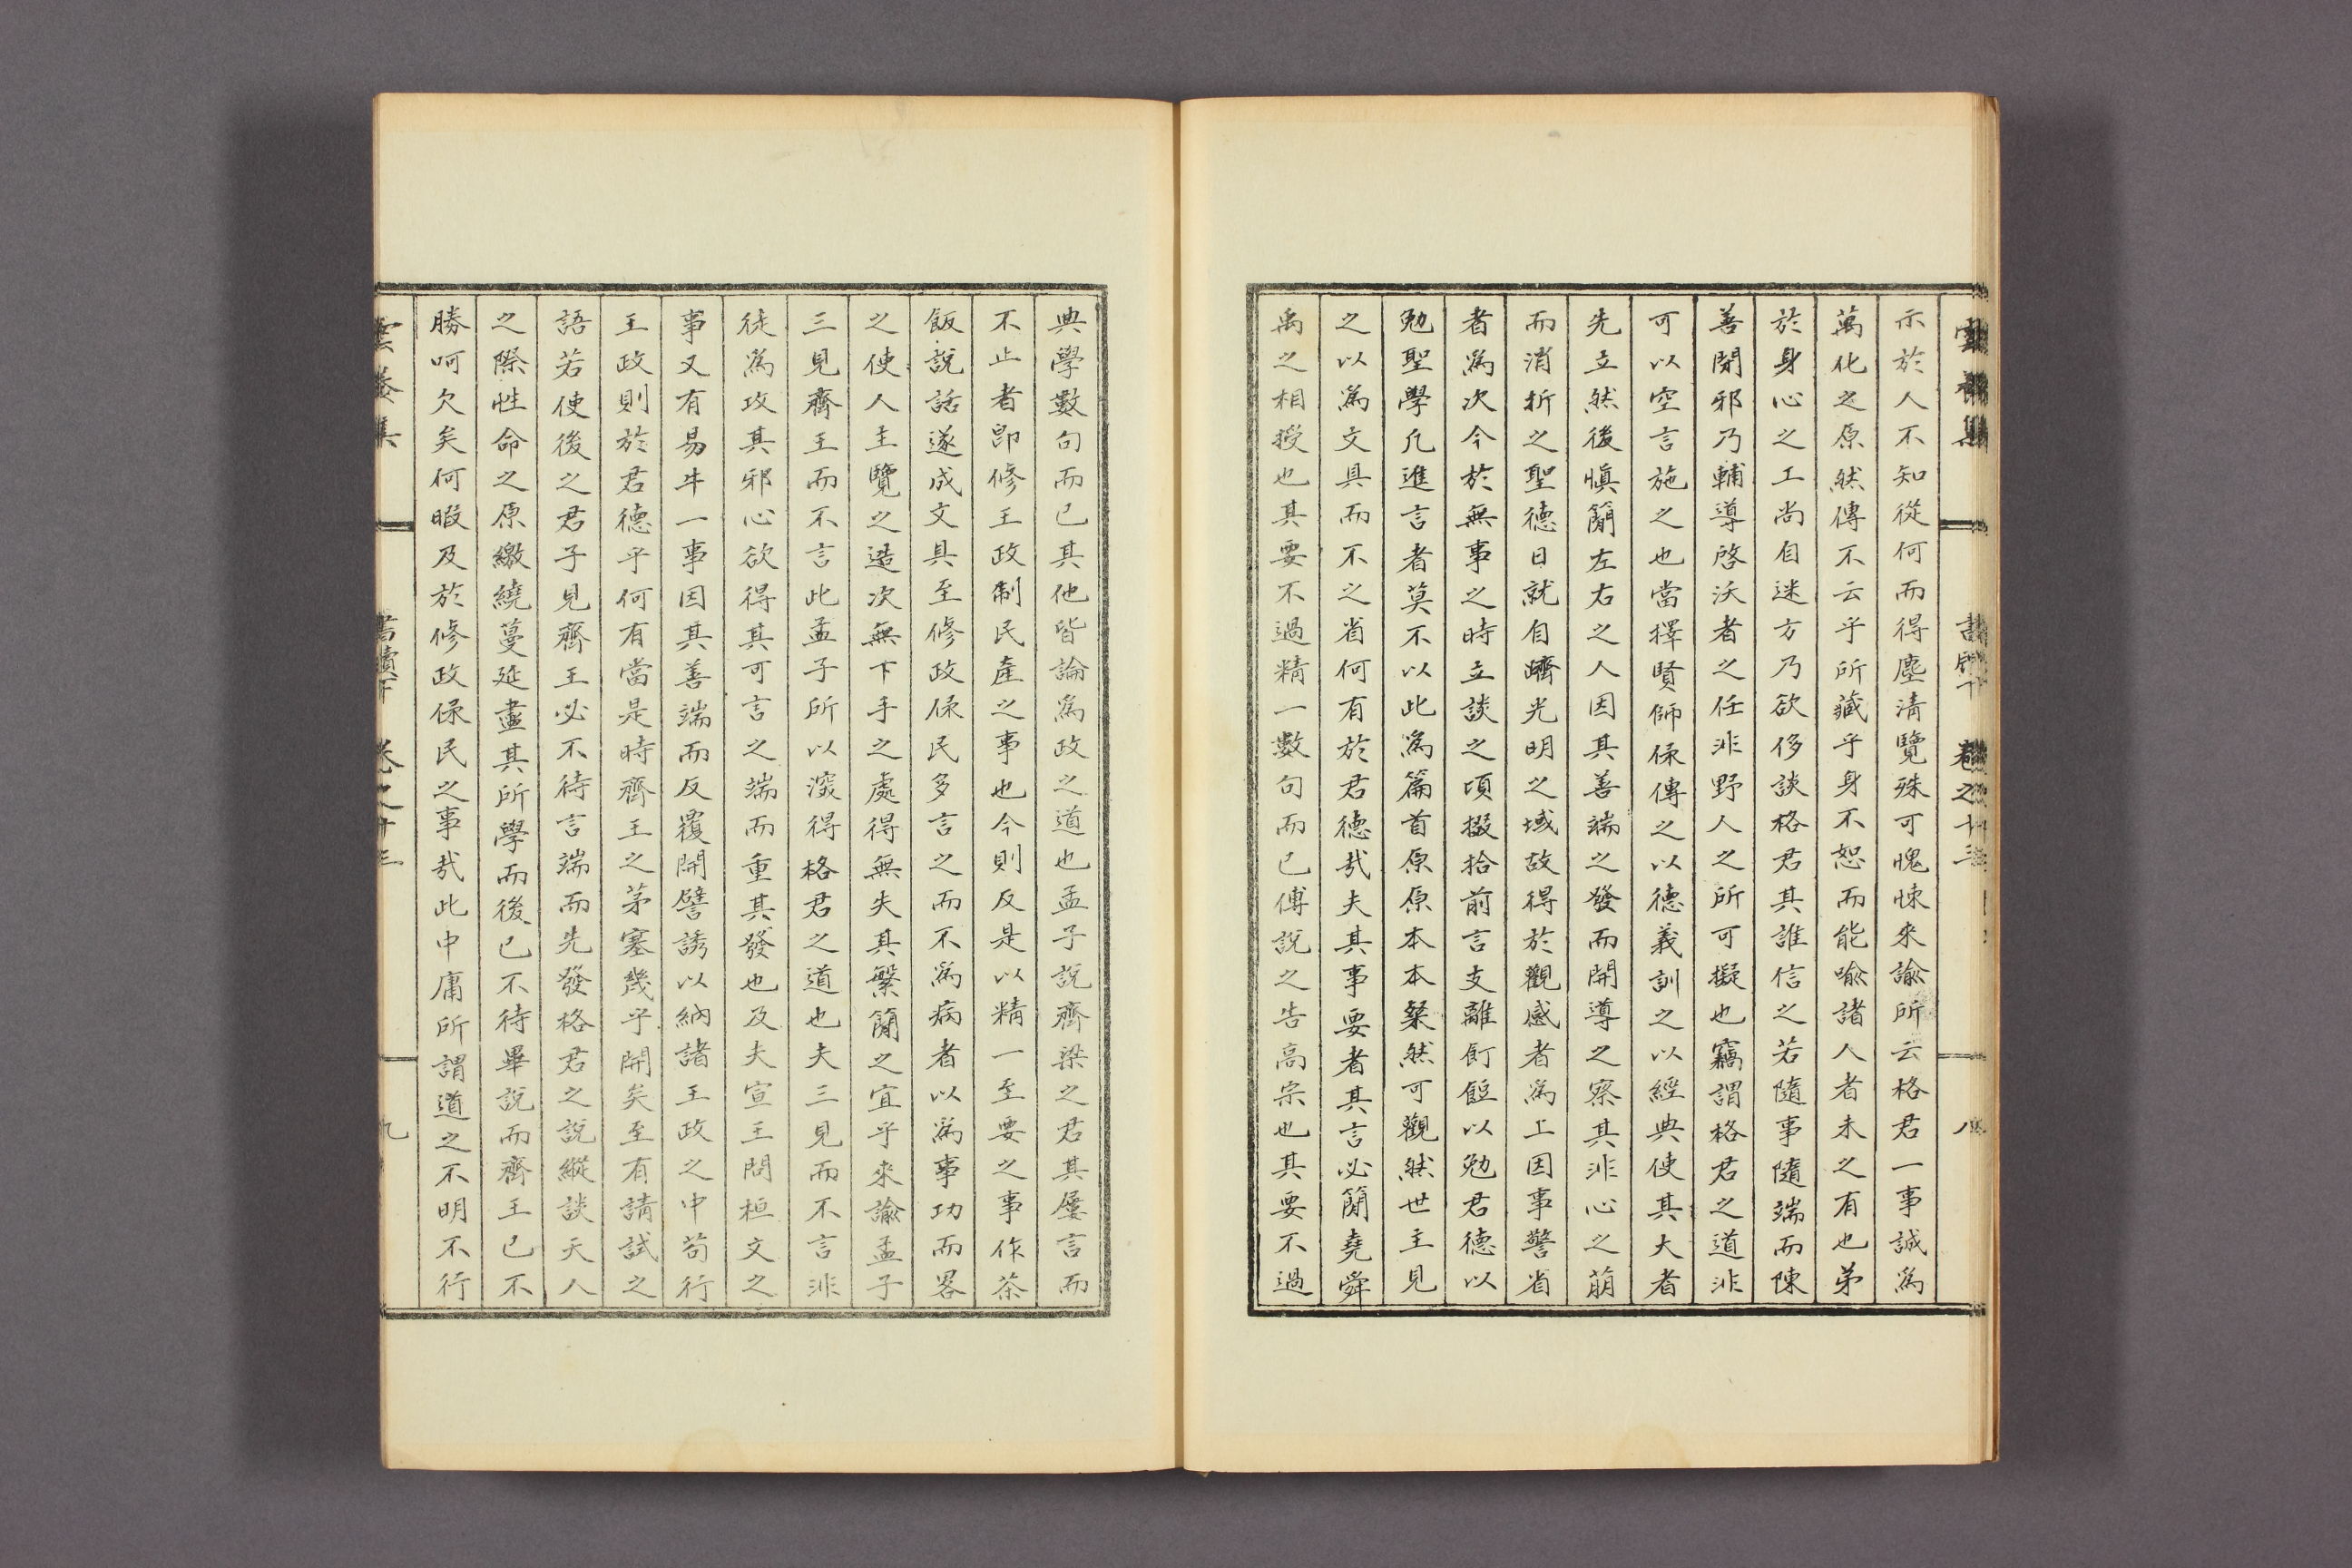 示於人不知從何而得塵淸覽殊可愧悚來諭所云格君一事誠爲
萬化之原然傳不云乎所藏乎身不恕而能喻諸人者未之有也弟
於身心之工尙自迷方乃欲侈談格君其誰信之若隨事隨端而陳
善閉邪乃輔導啓沃者之任非野人之所可擬也竊謂格君之道非
可以空言施之也當擇賢師保傳之以德義訓之以經典使其大者
先立然後愼簡左右之人因其善端之發而開導之察其非心之萠
而消折之聖德日就自躋光明之域故得於觀感者爲上因事警省
者爲次今於無事之時立談之頃掇拾前言支離飣餖以勉君德以
勉聖學凡進言者莫不以此爲篇首原原本本粲然可觀然世主見
之以爲文具而不之省何有於君德哉夫其事要者其言必簡堯舜
禹之相授也其要不過精一數句而已傅說之告高宗也其要不過
典學數句而已其他皆論爲政之道也孟子說齊梁之君其屢言而
不止者卽修王政制民產之事也今則反是以精一至要之事作茶
飯說話遂成文具至修政保民多言之而不爲病者以爲事功而畧
之使人主覽之造次無下手之處得無失其繁簡之宜乎來諭孟子
三見齊王而不言此孟子所以深得格君之道也夫三見而不言非
徒爲攻其邪心欲得其可言之端而重其發也及夫宣王問桓文之
事又有易牛一事因其善端而反覆開譬誘以納諸王政之中苟行
王政則於君德乎何有當是時齊王之茅塞幾乎開矣至有請試之
語若使後之君子見齊王必不待言端而先發格君之說縱談天人
之際性命之原繳繞蔓延盡其所學而後已不待畢說而齊王已不
勝呵欠矣何暇及於修政保民之事哉此中庸所謂道之不明不行
卷之十三
九